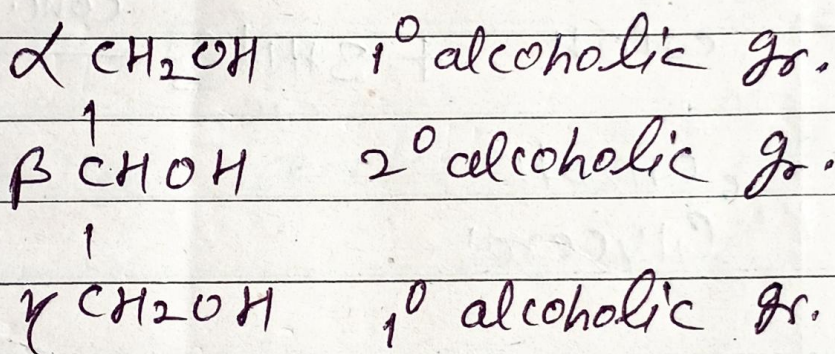 α CH2OH 1° alcoholic gr.
|
β CHOH 2° alcoholic gr.
|
γ CH2OH 1° alcoholic gr.